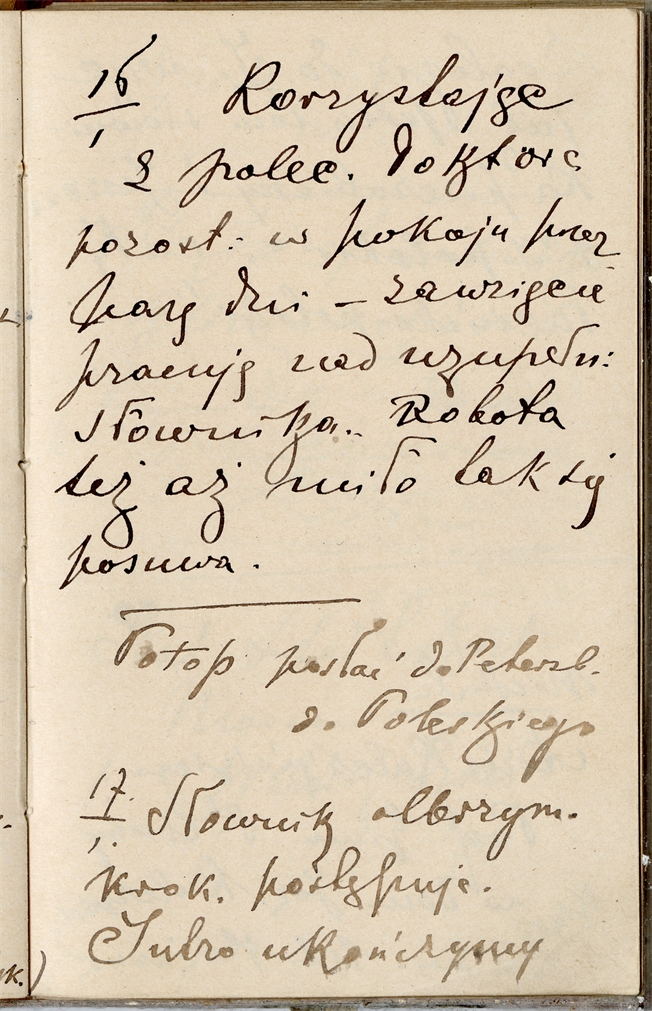 16/1 Korzystając
z polec. doktora
pozost. w pokoju przez
parę dni – zawzięcie
pracuję nad uzupełn:
słownika. Robota
też aż miło tak się
posuwa.
Potop posłać do Petersb.
do Poleskiego
17/1. Słownik olbrzym.
krok. postępuje.
Jutro ukończymy
yk.)